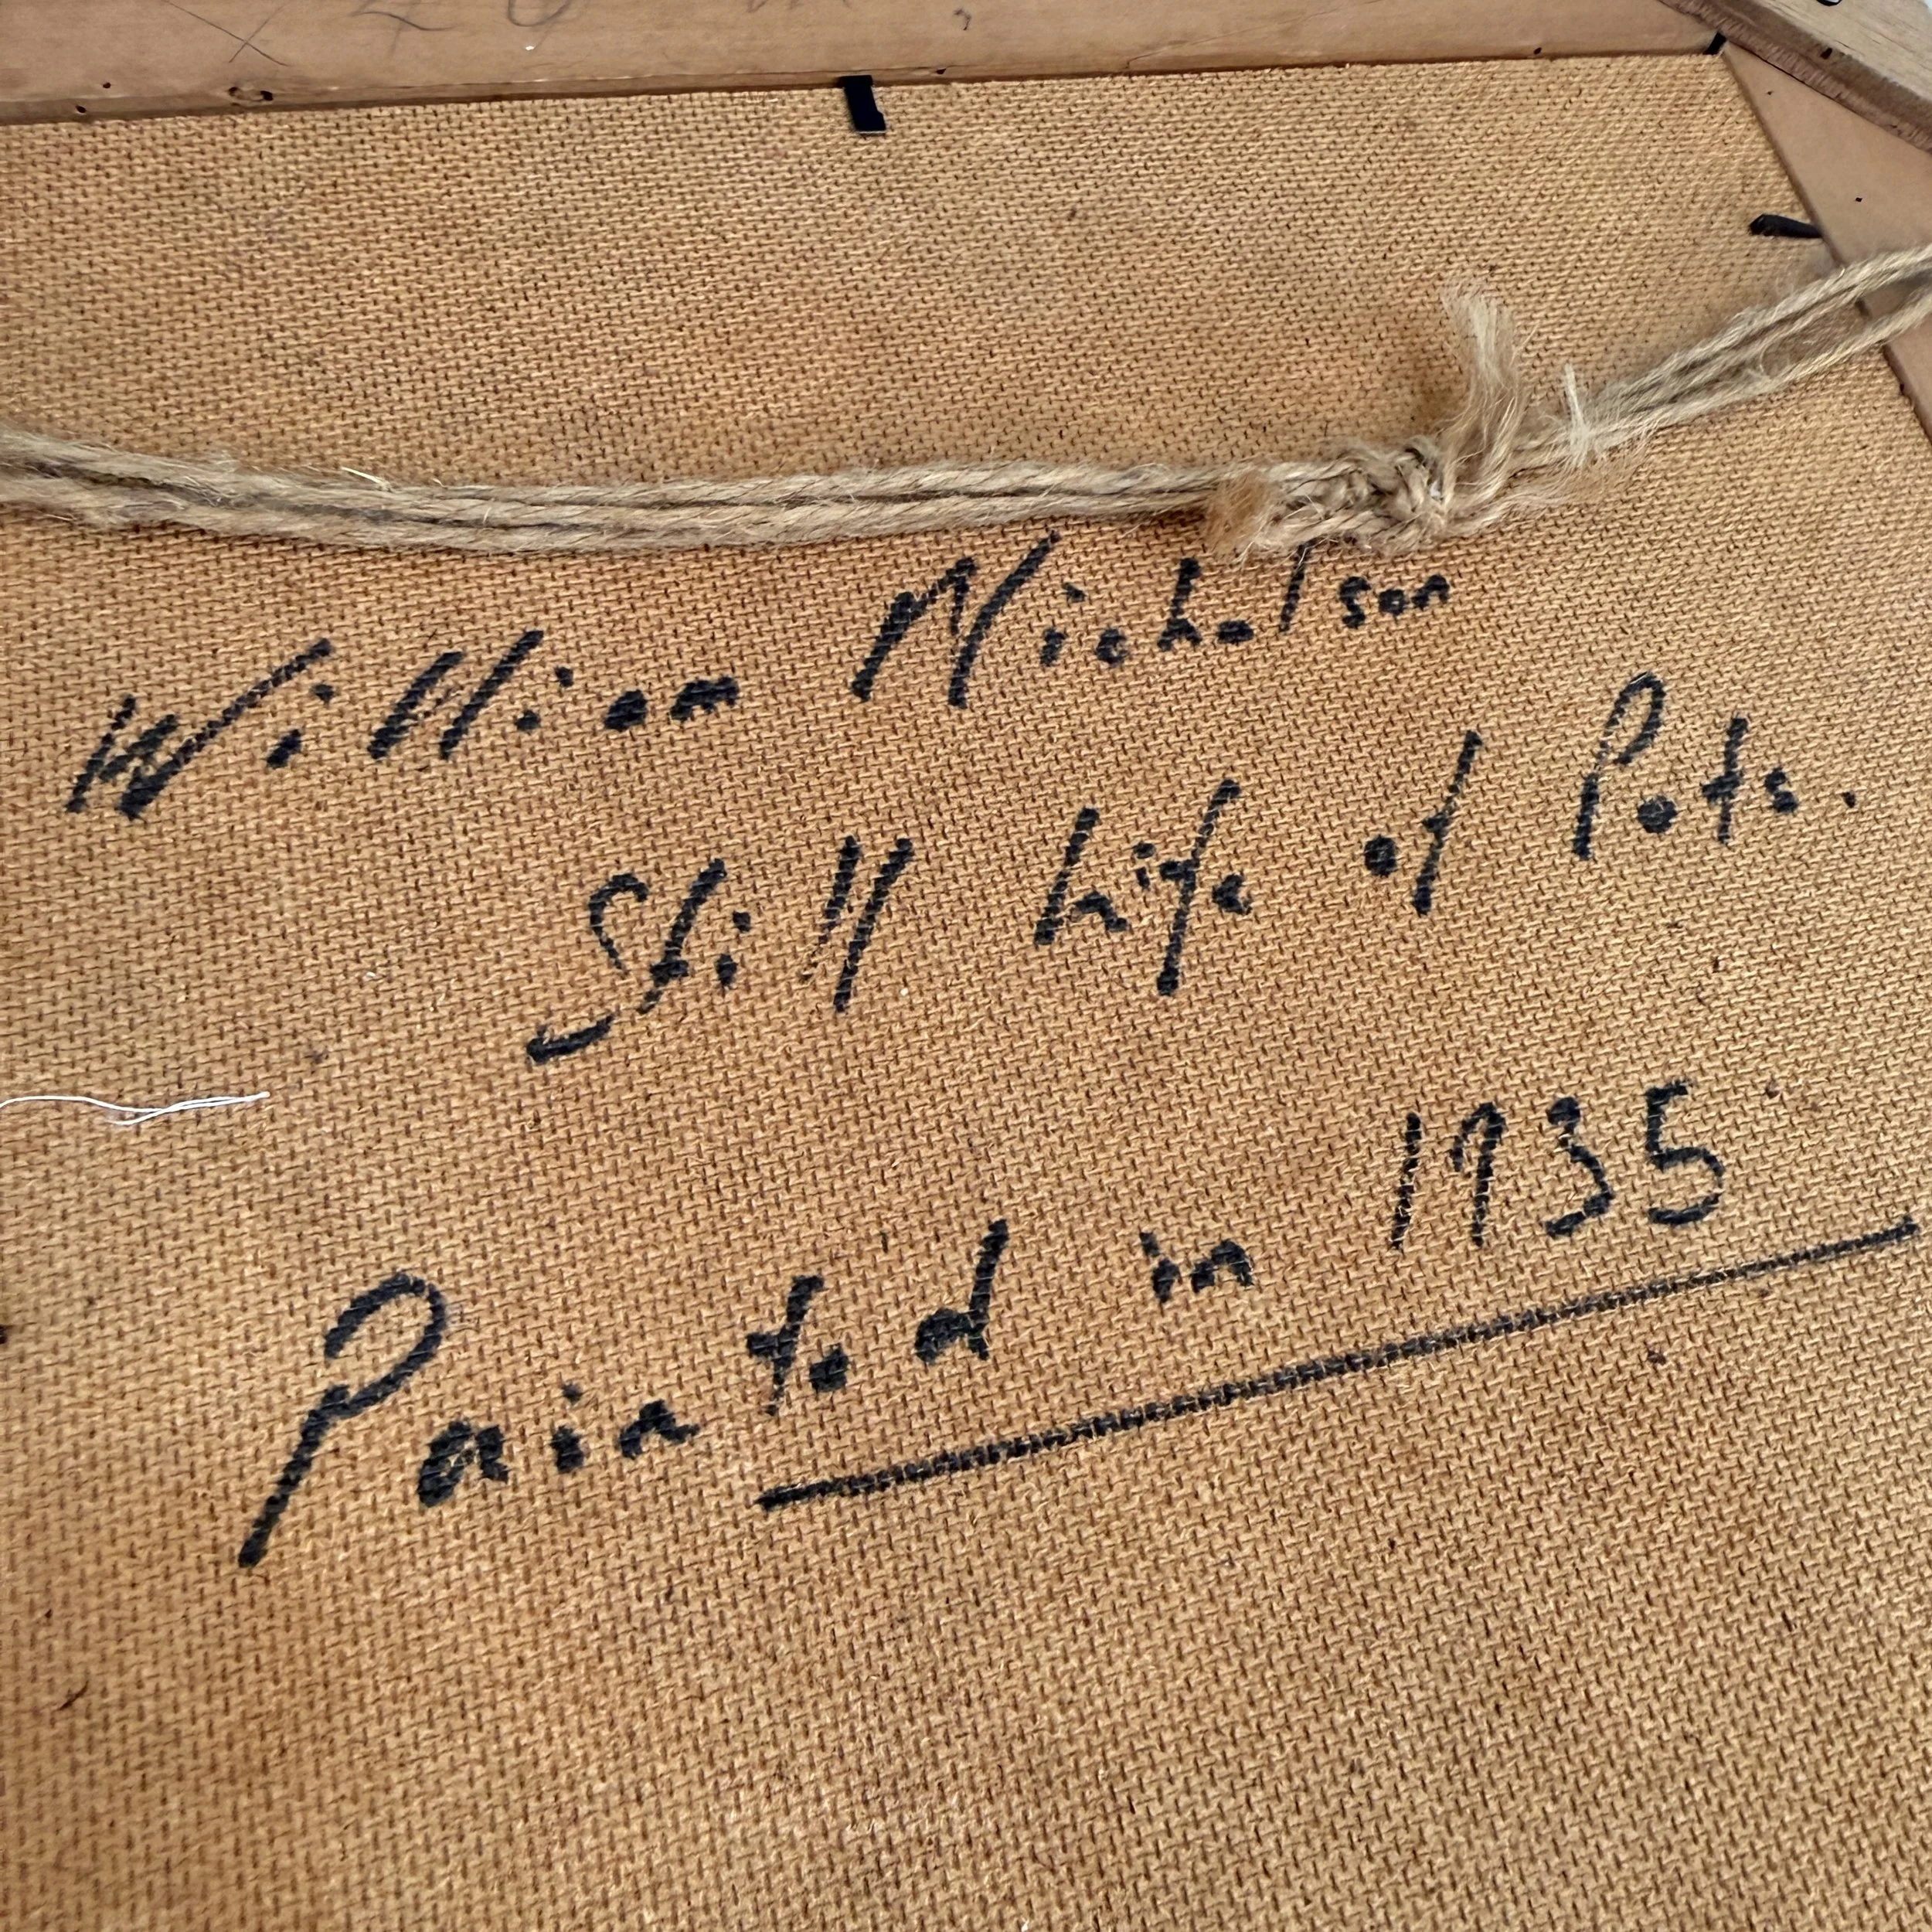 William Nicholson
Still Life of Pots.
Painted in 1935